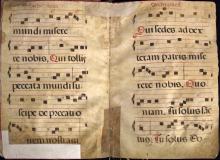 mundi misere
re nobis, Qui tollis
peccata mundi su
scipe de precatio
nem nostram
Qui sedes ad dex
teram patris mise
rere nobis, Quo
niam, tu solus sanc
tus, tu solus Do